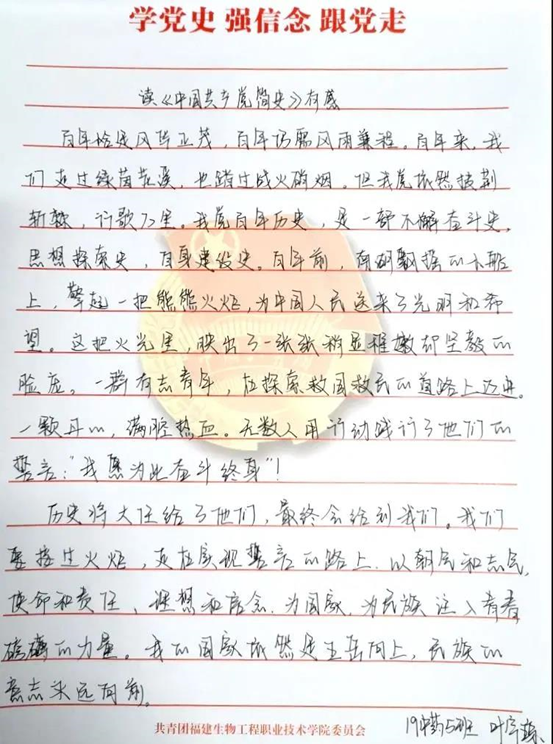 学党史 强信念 跟党走
读《中国共产党简史》有感
百年恰是风华正茂，百年仍需风雨兼程。百年来，我
们走过绿茵花溪，也踏过战火硝烟。但我党依然披荆
斩棘，行歌万里。我党百年历史，是一部不懈奋斗史，
思想探索史，自身建设史。百年前，南湖飘摇的小船
上，擎起一把熊熊火炬，为中国人民送来了光明和希
望。这把火光里，映出了一张张稍显稚嫩却坚毅的
脸庞。一群有志青年，在探索救国救民的道路上迈进。
一颗丹心，满腔热血。无数人用行动践行了他们的
誓言：“我愿为此奋斗终身”！
历史将大任给了他们，最终会给到我们。我们
要接过火炬，走在实现誓言的路上，以朝气和志气，
使命和责任，理想和信念，为国家，为民族注入青春
磅礴的力量。我的国家依然是五岳向上，民族的
意志永远向前。
共青团福建生物工程职业技术学院委员会
19中药5班 叶宇